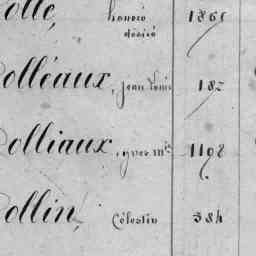 olle, honoré 1865
désiré
olléaux, jean Louis 182
olliaux, yves m^ie 1108
ollin, Célestin 384